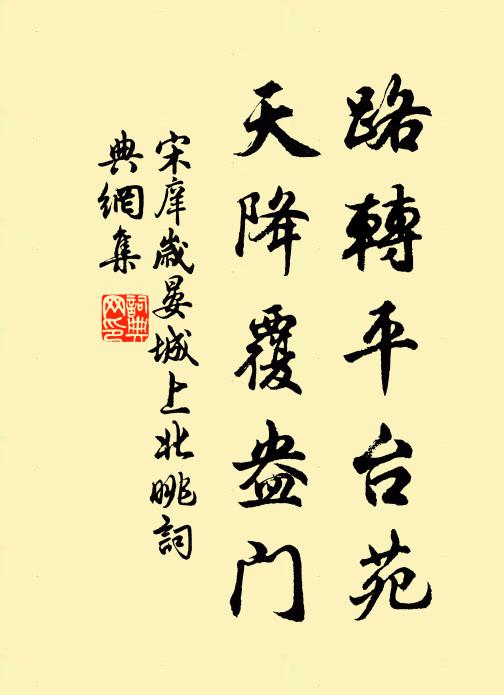 路轉平台苑
天降覆盎门
宋庠歲晏城上北眺詞
典網集
詞典網印